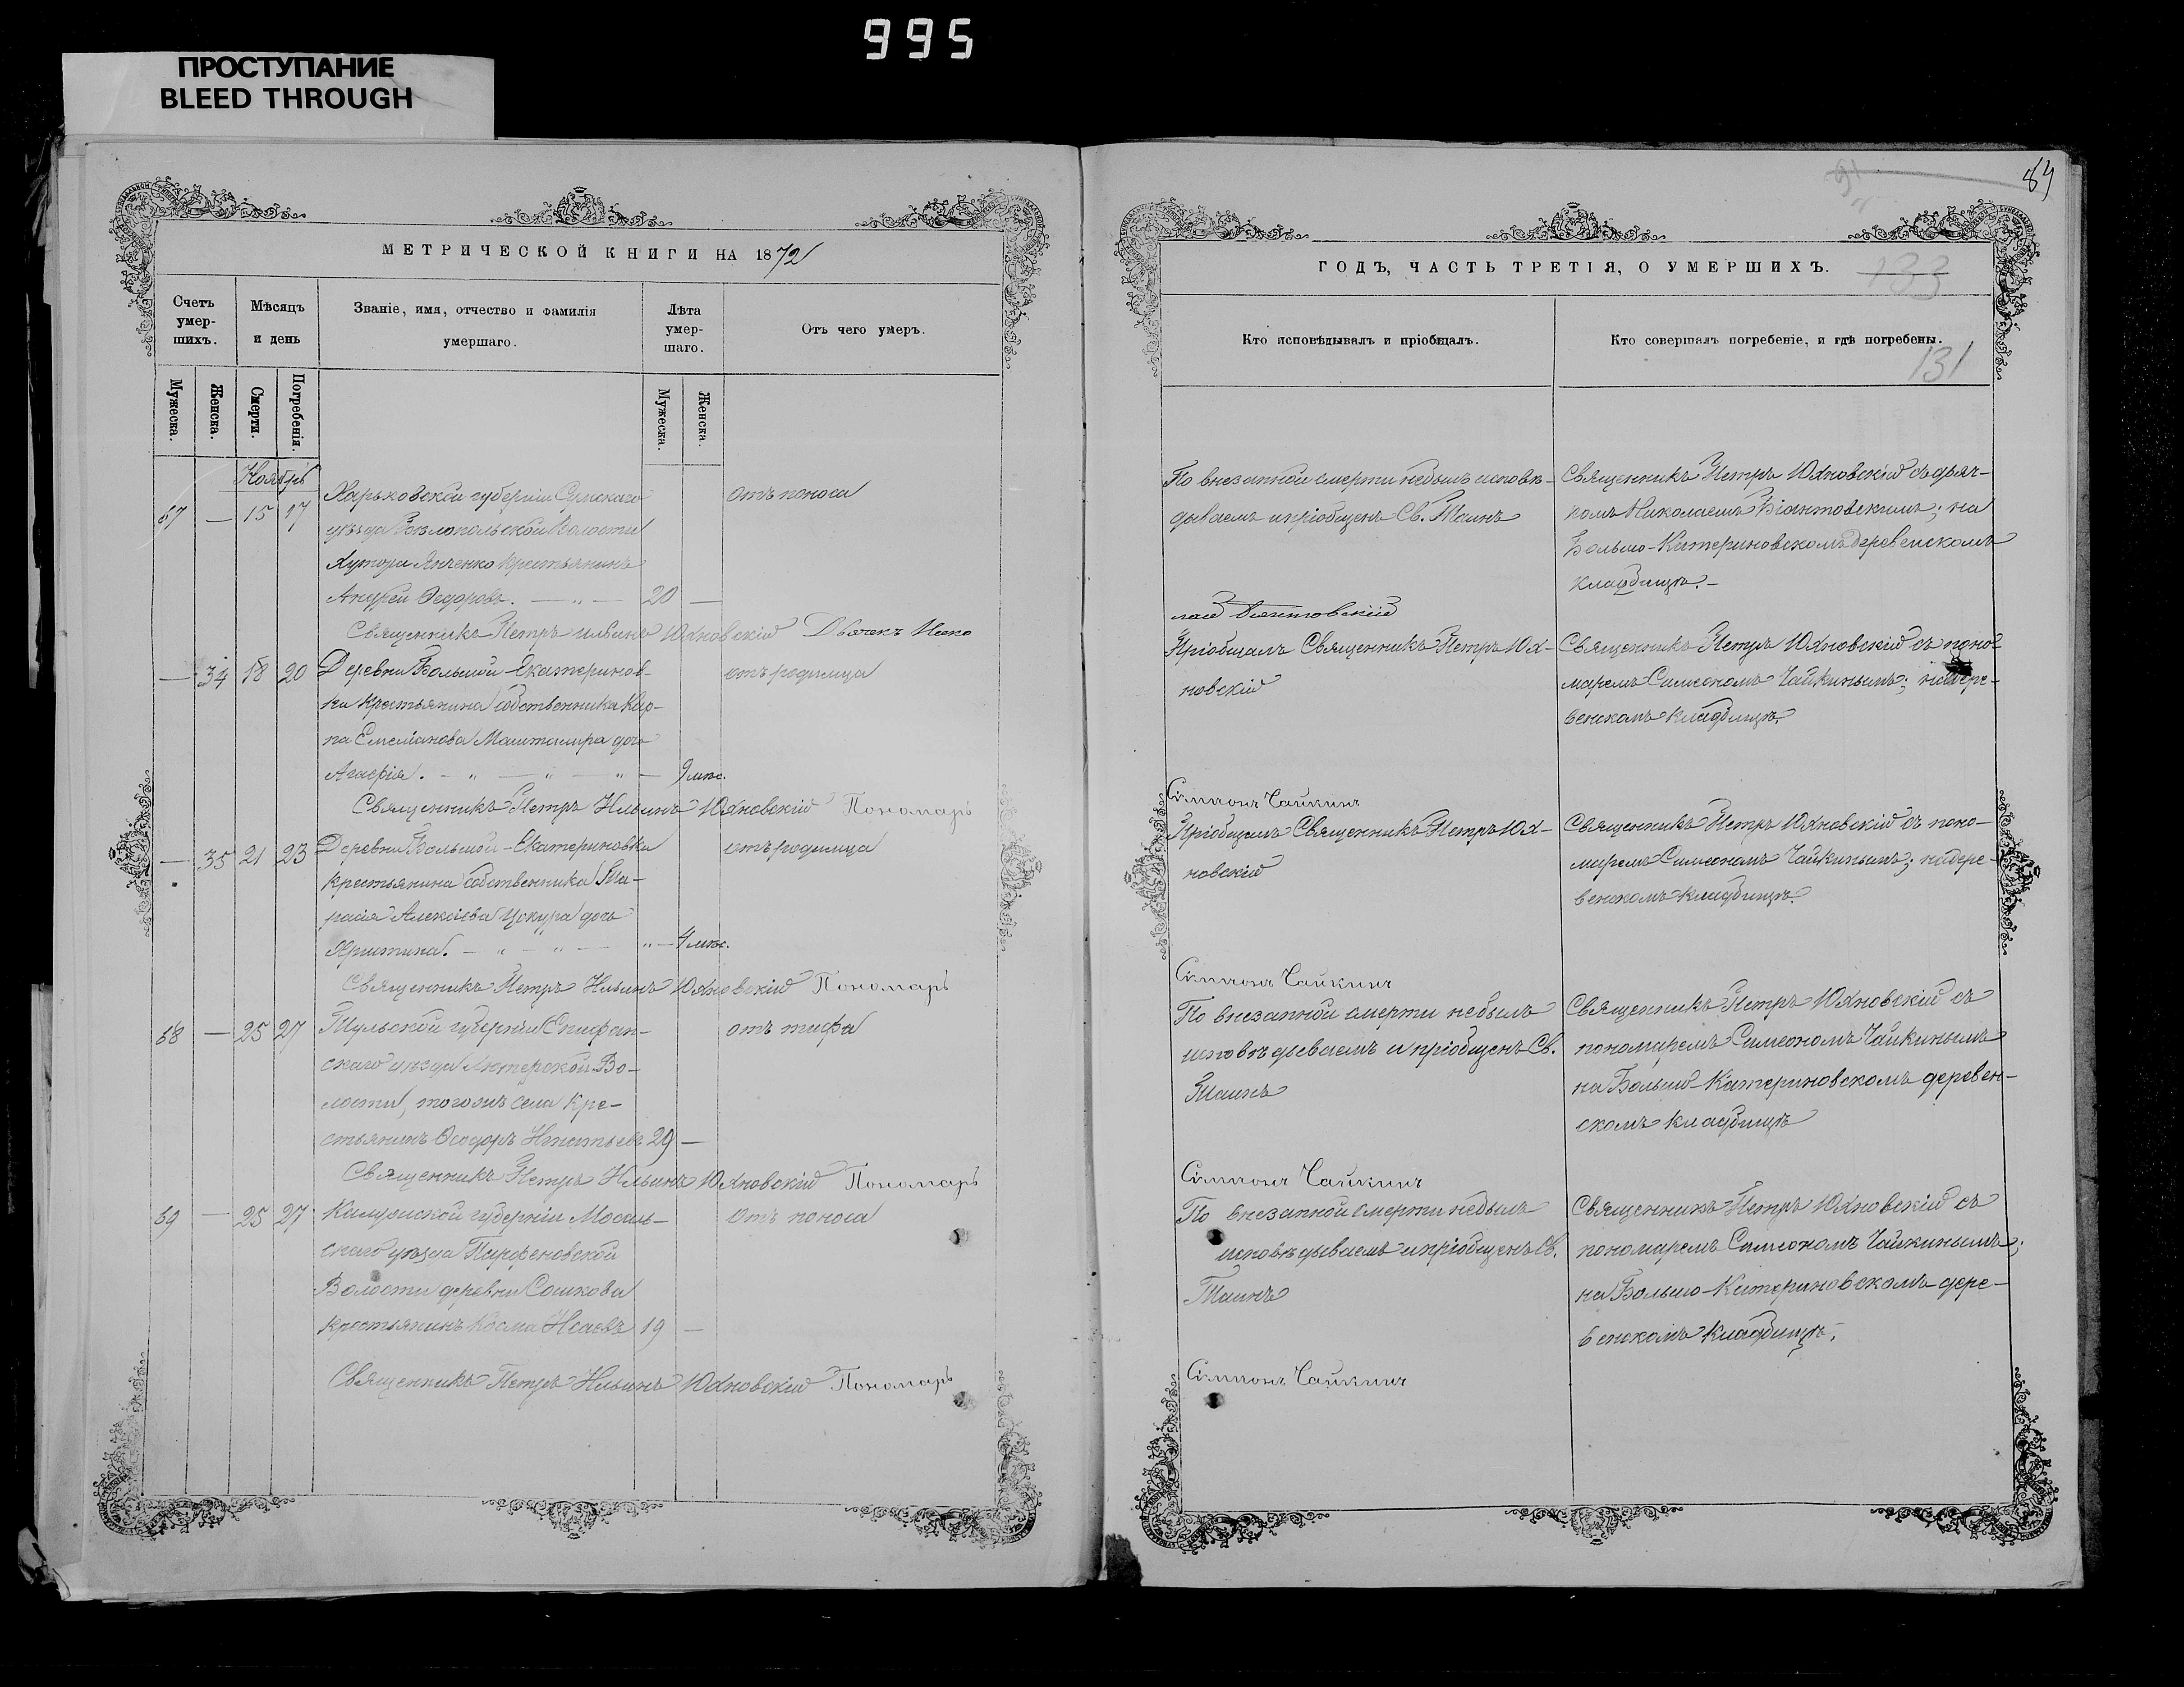 995
ПРОСТУПАНИЕ
BLEED THROUGH
МЕТРИЧЕСКОЙ КНИГИ НА 1872
Счетъ умер-шихъ.
Мѣсяцъ и день
Званіе, имя, отчество и фамилія умершаго.
Лѣта умер-шаго.
Отъ чего умеръ.
Мужеска.
Женска.
Смерти.
Погребенія.
Мужеска.
Женска.
Ноябрь
67 — 15 17
Харьковской губерніи Сумскаго
уѣзда Бѣлопольской Волости
Хутора Янченко крестьянинъ
Андрей Ѳедоровъ. — „ — 20 —
отъ поноса
Священникъ Петръ Ильинъ Юхновскій Дьячекъ Нико
— 34 18 20
Деревни Большой-Екатеринов-
ки крестьянина собственника Кар-
па Емеліанова дочь
Агафія. — „ — „ — „ — 9 мѣс.
отъ родимца
Священникъ Петръ Ильинъ Юхновскій Пономарь
— 35 21 23
Деревни Большой-Екатериновки
крестьянина собственника Та-
расія Алексіева Цокура дочь
Христина. — „ — „ — „ — 4 мѣс.
отъ родимца
Священникъ Петръ Ильинъ Юхновскій Пономарь
68 — 25 27
Тульской губерніи Епифан-
скаго уѣзда Во-
лости, тогожъ села кре-
стьянинъ Ѳеодоръ Игнатьевъ 29 —
отъ тифа
Священникъ Петръ Ильинъ Юхновскій Пономарь
69 — 25 27
Калужской губерніи Мосаль-
скаго уѣзда Парфеновской
Волости деревни Сошкова
крестьянинъ Косма Исаевъ 19 —
отъ поноса
Священникъ Петръ Ильинъ Юхновскій Пономарь
89
91
ГОДЪ, ЧАСТЬ ТРЕТІЯ, О УМЕРШИХЪ.
133
Кто исповѣдывалъ и пріобщалъ.
Кто совершалъ погребеніе, и гдѣ погребены.
131
По внезапной смерти небылъ исповѣ-
дываемъ и пріобщенъ Св. Таинъ
Священникъ Петръ Юхновскій съ дьяч-
комъ Николаемъ Біантовскимъ; на
Больше-Катериновскомъ деревенскомъ
кладбищѣ.—
лай Біянтовскій
Пріобщалъ Священникъ Петръ Юх-
новскій
Священникъ Петръ Юхновскій съ поно-
маремъ Симеономъ Чайкинымъ; на дере-
венскомъ кладбищѣ.
Симеонъ Чайкинъ
Пріобщалъ Священникъ Петръ Юх-
новскій
Священникъ Петръ Юхновскій съ поно-
маремъ Симеономъ Чайкинымъ; на дере-
венскомъ кладбищѣ.
Симеонъ Чайкинъ
По внезапной смерти небылъ
исповѣдываемъ и пріобщенъ Св.
Таинъ
Священникъ Петръ Юхновскій съ
пономаремъ Симеономъ Чайкинымъ
на Больше-Катериновскомъ деревен-
скомъ кладбищѣ
Симеонъ Чайкинъ
По внезапной смерти небылъ
исповѣдываемъ и пріобщенъ Св.
Таинъ
Священникъ Петръ Юхновскій съ
пономаремъ Симеономъ Чайкинымъ;
на Больше-Катериновскомъ дере-
венскомъ кладбищѣ.
Симеонъ Чайкинъ